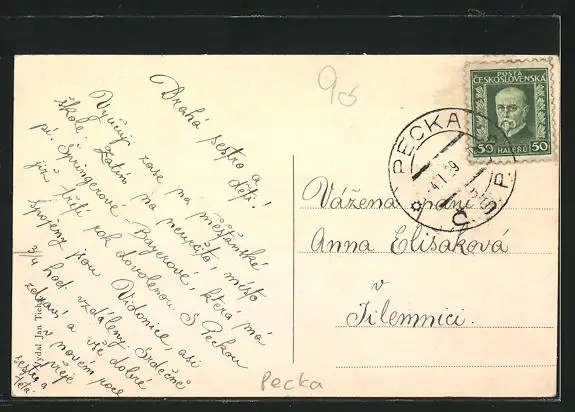 Drahá sestro a děti!
Vyučuji zase na měšťanské
škole. Zatím na neurčito, místo
pí. Springerové-Bayerové, která má
již třetí rok dovolenou. S Peckou
spojeny jsou Vidonice, asi
3/4 hod vzdáleny. Srdečně
zdraví a vše dobré
v novém roce
přeje
sestra a
teta.
Vydal Jan Tichý
90
POSTA
ČESKOSLOVENSKÁ
50 HALÉŘŮ 50
PECKA
Č.S.P.
Vážená paní
Anna Elisáková
v
Jilemnici.
Pecka